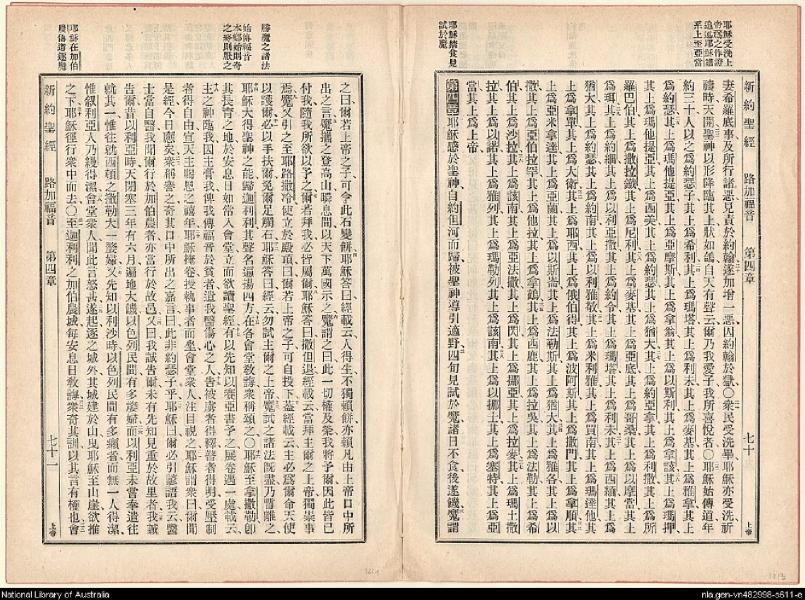 耶穌受洗上
新約聖經 路加福音 第四章 七十 上帝
妻希羅底事及所行諸惡見責於約翰遂加增一惡囚約翰於獄○衆民受洗畢耶穌亦受洗祈
禱時天開聖神以形降臨其上狀如鴿自天有聲云爾乃我愛子我所喜悅者○耶穌始傳道年
約三十人以之爲約瑟子其上爲希利其上爲瑪塔其上爲利未其上爲麥基其上爲雅拿其上
爲約瑟其上爲瑪他提亞其上爲亞摩斯其上爲拿翁其上爲以斯利其上爲拿該其上爲瑪押
其上爲瑪他提亞其上爲西美其上爲約瑟其上爲猶大其上爲約亞拿其上爲利撒其上爲所
羅巴伯其上爲撒拉鐵其上爲尼利其上爲麥基其上爲亞底其上爲哥桑其上爲以摩當其上
爲珥其上爲約細其上爲以利亞撒其上爲約令其上爲瑪塔其上爲利未其上爲西緬其上爲
猶大其上爲約瑟其上爲約南其上爲以利雅敬其上爲米利雅其上爲買南其上爲瑪達他其
上爲拿單其上爲大衛其上爲耶西其上爲俄伯得其上爲波阿斯其上爲撒門其上爲拿順其
上爲亞米拿達其上爲亞蘭其上爲以斯崙其上爲法勒斯其上爲猶大其上爲雅各其上爲以
撒其上爲亞伯拉罕其上爲他拉其上爲拿鶴其上爲西鹿其上爲拉吳其上爲法勒其上爲希
伯其上爲沙拉其上爲該南其上爲亞法撒其上爲閃其上爲挪亞其上爲拉麥其上爲瑪土撒
拉其上爲以諾其上爲雅列其上爲瑪勒列其上爲該南其上爲以挪士其上爲塞特其上爲亞
當其上爲上帝
第四章耶穌感於聖神自約但河而歸被聖神導引適野四旬見試於魔諸日不食後遂饑魔謂
勝魔之諸法
始傳福音
之曰爾若上帝之子可令此石變餅耶穌答曰經載云人得生不獨賴餅亦賴凡由上帝口中所
出之言魔攜之登高山瞬息間以天下萬國示之魔謂之曰此一切權及榮我將予爾因此皆已
付我隨我所欲以予之爾若拜我必皆屬爾耶穌答曰撒但退經載云當拜主爾之上帝獨崇事
焉魔又引之至耶路撒冷使立於殿頂曰爾若上帝之子可自投下蓋經載云主必爲爾命天使
以護爾必以手扶爾免爾足觸石耶穌答曰經云勿試主爾之上帝魔試之諸法旣盡乃暫離之
耶穌大得聖神之能歸迦利利其聲名徧揚四方在各會堂敎誨衆稱頌之○耶穌至拿撒勒卽
其長育之地於安息日如常入會堂立而欲讀聖經有以先知以賽亞書予之展卷遇一處載云
主之神臨我因主膏我俾我傳福音於貧者遣我醫傷心之人告被虜者得釋瞽者得明受壓制
者得自由宣天主眷恩之禧年耶穌掩卷授執事者而坐會堂衆人注目視之耶穌謂衆曰爾聞
是經今日應矣衆稱譽之奇其口中所出之嘉言曰此非約瑟子乎耶穌曰爾必引諺語我云醫
士當自醫我聞爾行於加伯農者亦當行於故邑又曰我誠告爾未有先知見重於故里者我誠
告爾昔以利亞時天閉塞三年有六月遍地大饑以色列民間有多嫠婦而以利亞未嘗奉遣往
就其一惟往就西頓之撒勒大一嫠婦又先知以利沙時以色列民間有多癩者而無一人得潔
惟叙利亞人乃縵得潔會堂衆人聞此言怒甚遂起逐之城外其城建於山曳耶穌至山崖欲推
之下耶穌徑行衆中而去○至迦利利之加伯農城每安息日敎誨衆奇其訓以其言有權也會
耶穌在加伯
新約聖經 路加福音 第四章 七十一 上帝
National Library of Australia
nla.gen-vn482998-s611-e